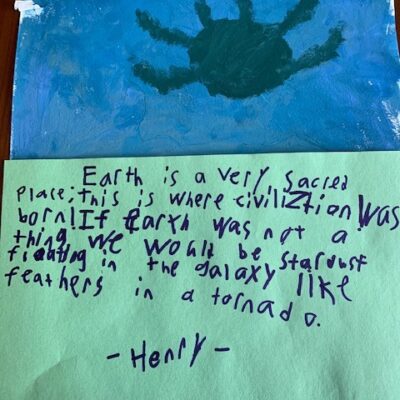 Earth is a very sacred
place; this is where civiliZtion was
born! If Earth was not a
thing we would be stardust
floating in the galaxy like
feathers in a tornado.
- Henry -